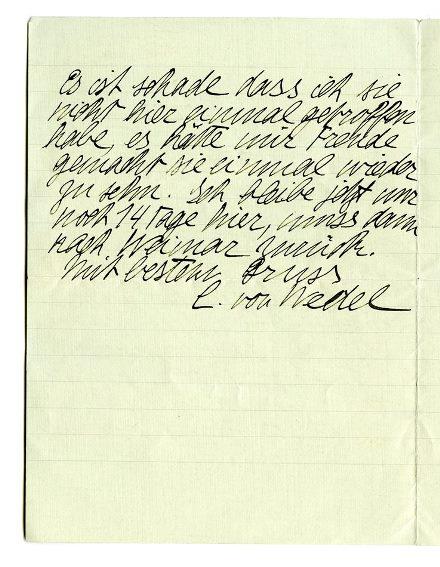 Es ist schade dass ich sie
nicht hier einmal getroffen
habe, es hätte mir Freude
gemacht sie einmal wieder
zu sehn. Ich bleibe jetzt nur
noch 14 Tage hier, muss dann
nach Weimar zurück.
Mit bestem Gruss
E. von Wedel